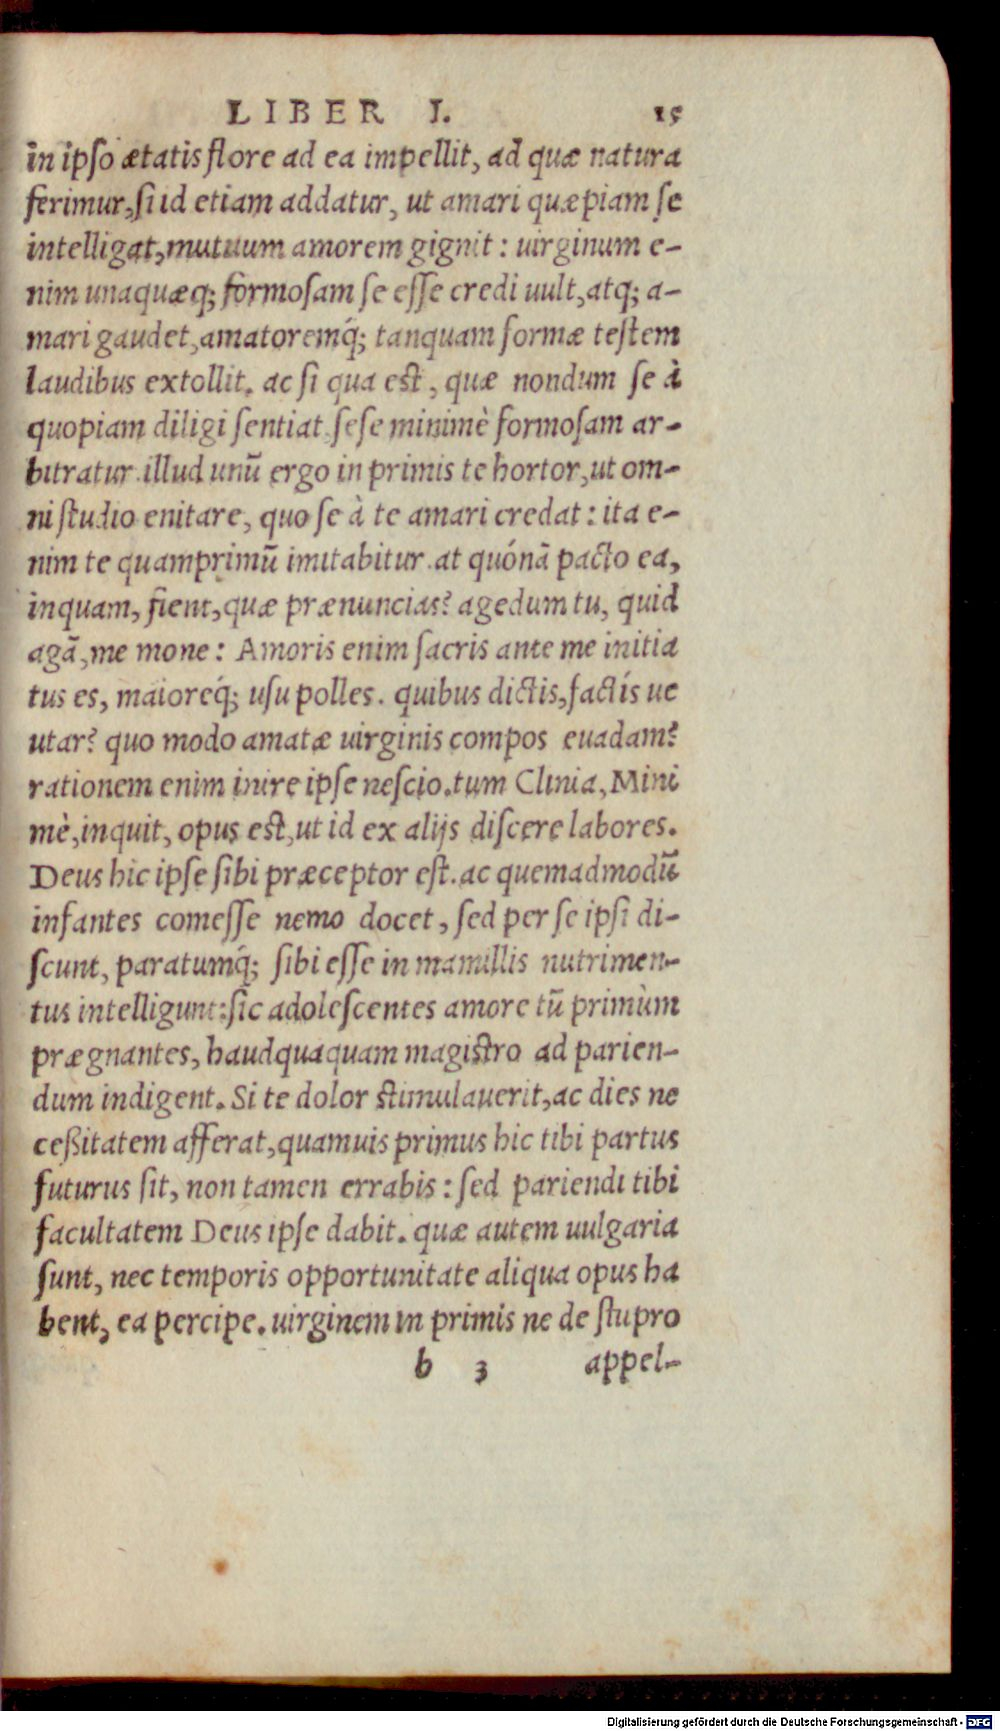 LIBER I. 15
in ipso ætatis flore ad ea impellit, ad quæ natura
ferimur, si id etiam addatur, ut amari quæpiam se
intelligat, mutuum amorem gignit : uirginum e-
nim unaquæq; formosam se esse credi uult, atq; a-
mari gaudet, amatoremq́; tanquam formæ testem
laudibus extollit. ac si qua est, quæ nondum se à
quopiam diligi sentiat, sese minimè formosam ar-
bitratur. illud unū ergo in primis te hortor, ut om-
ni studio enitare, quo se à te amari credat : ita e-
nim te quamprimū imitabitur. at quónā pacto ea,
inquam, fient, quæ prænuncias? agedum tu, quid
agā, me mone : Amoris enim sacris ante me initia
tus es, maioreq́; usu polles. quibus dictis, factís ue
utar? quo modo amatæ uirginis compos euadam?
rationem enim inire ipse nescio. tum Clinia, Mini
mè, inquit, opus est, ut id ex alijs discere labores.
Deus hic ipse sibi præceptor est. ac quemadmodū
infantes comesse nemo docet, sed per se ipsi di-
scunt, paratumq́; sibi esse in mamillis nutrimen-
tus intelligunt : sic adolescentes amore tū primùm
prægnantes, haudquaquam magistro ad parien-
dum indigent. Si te dolor stimulauerit, ac dies ne
ceßitatem afferat, quamuis primus hic tibi partus
futurus sit, non tamen errabis : sed pariendi tibi
facultatem Deus ipse dabit. quæ autem uulgaria
sunt, nec temporis opportunitate aliqua opus ha
bent, ea percipe. uirginem in primis ne de stupro
b 3 appel-
Digitalisierung gefördert durch die Deutsche Forschungsgemeinschaft - DFG